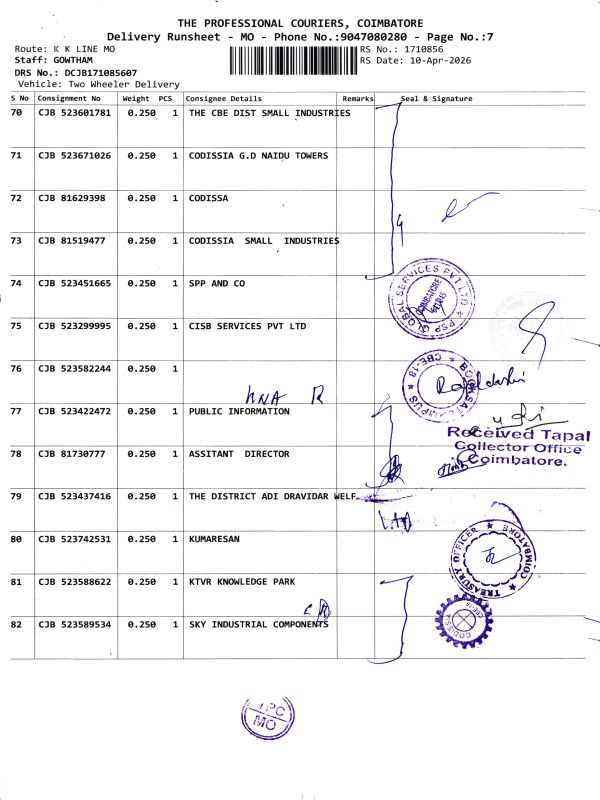 THE PROFESSIONAL COURIERS, COIMBATORE
Delivery Runsheet - MO - Phone No.:9047080280 - Page No.:7
Route: K K LINE MO
RS No.: 1710856
Staff: GOWTHAM
RS Date: 10-Apr-2026
DRS No.: DCJB171085607
Vehicle: Two Wheeler Delivery
S No Consignment No Weight PCS Consignee Details Remarks Seal & Signature
70 CJB 523601781 0.250 1 THE CBE DIST SMALL INDUSTRIES
71 CJB 523671026 0.250 1 CODISSIA G.D NAIDU TOWERS
72 CJB 81629398 0.250 1 CODISSA
73 CJB 81519477 0.250 1 CODISSIA SMALL INDUSTRIES
4
74 CJB 523451665 0.250 1 SPP AND CO
PSP GLOBAL SERVICES PVT LTD
COIMBATORE
75 CJB 523299995 0.250 1 CISB SERVICES PVT LTD
76 CJB 523582244 0.250 1
CBE-18
77 CJB 523422472 0.250 1 PUBLIC INFORMATION
Received Tapal
Collector Office
Coimbatore.
78 CJB 81730777 0.250 1 ASSITANT DIRECTOR
79 CJB 523437416 0.250 1 THE DISTRICT ADI DRAVIDAR WELF
80 CJB 523742531 0.250 1 KUMARESAN
TREASURY OFFICER COIMBATORE
81 CJB 523588622 0.250 1 KTVR KNOWLEDGE PARK
82 CJB 523589534 0.250 1 SKY INDUSTRIAL COMPONENTS
CODISSIA
TPC
MO